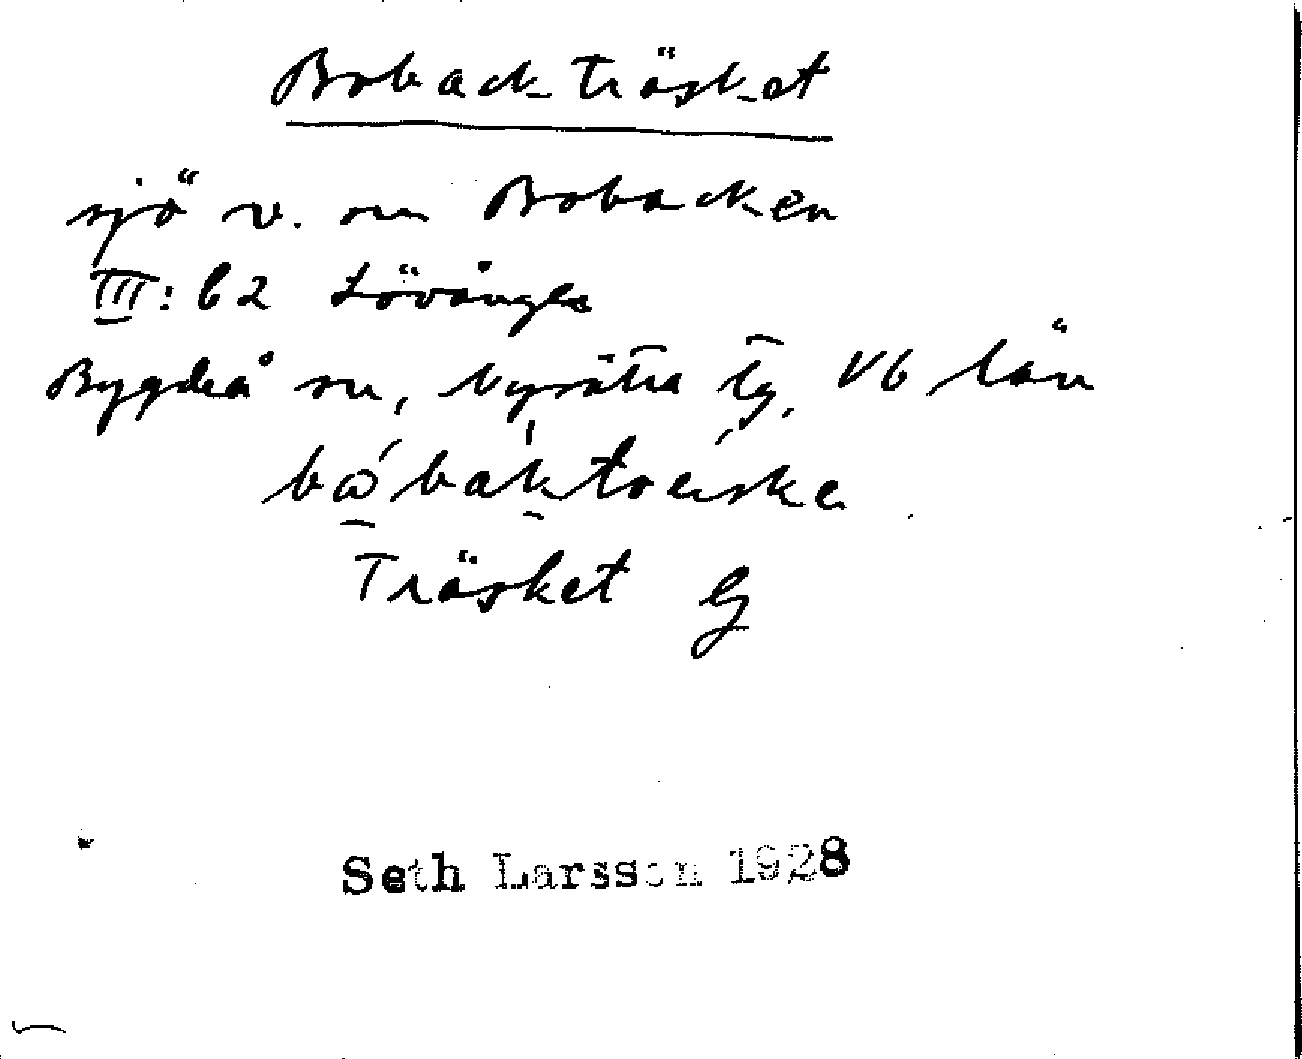 Boback-träsket
sjö v. om Bobacken
III: b2 Lövånger
Bygdeå sn, Nysätra tg, Vb län
Träsket G
Seth Larsson 1928